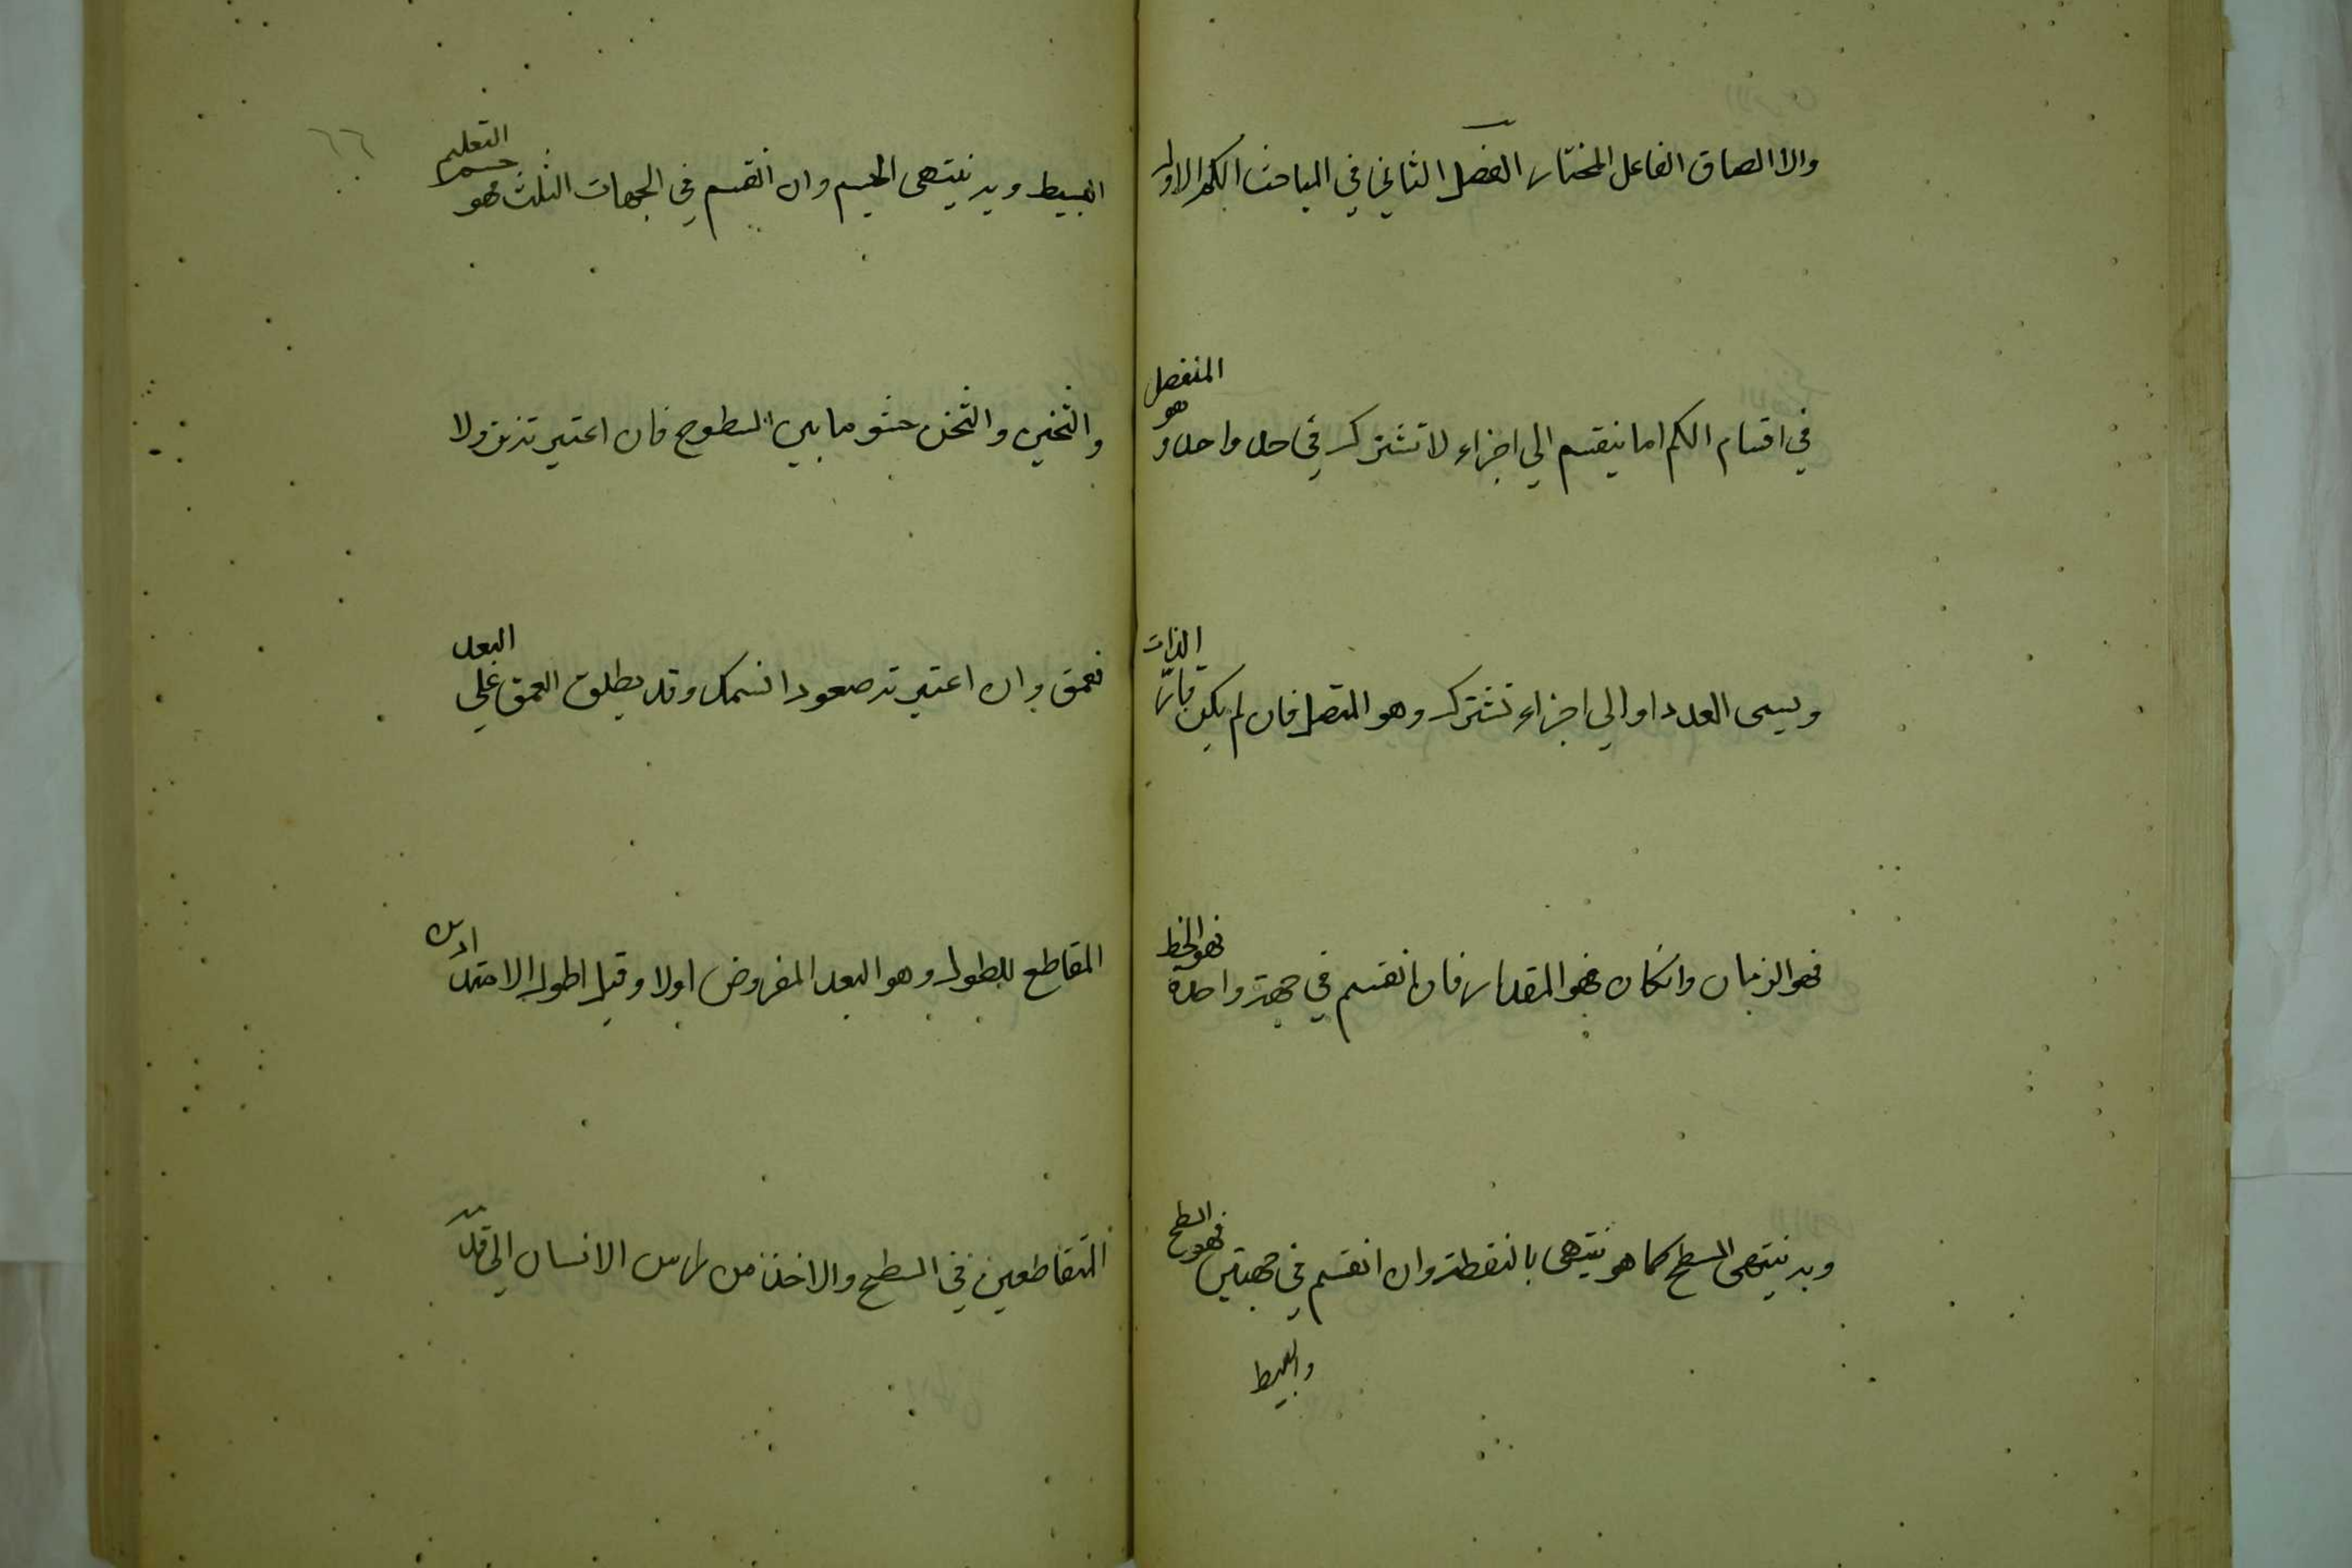 والا الصاق الفاعل المختار الفصل الثاني في المباحث الكم الاول
في اقسام الكم اما ينقسم الي اجزاء لا تشترك في حد واحد و هو المنفصل
ويسمى العدد او الي اجزاء تشترك وهو المتصل فان لم يكن قارّ الذات
فهو الزمان وانكان فهو المقدار فان انقسم في جهة واحدة فهو الخط
وبه ينتهى السطح كما هو ينتهى بالنقطة وان انقسم في جهتين فهو السطح
والبسيط
٦٦
البسيط وبه ينتهى الجسم وان انقسم في الجهات الثلث فهو جسم التعليم
والثخين والثخن حشو ما بين السطوح فان اعتبر نزولا
فعمق وان اعتبر صعودا فسمك وقد يطلق العمق علي البعد
المقاطع للطول وهو البعد المفروض اولا وقيل اطول الامتدادين
المتقاطعين في السطح والاخذ من راس الانسان الي قدمه